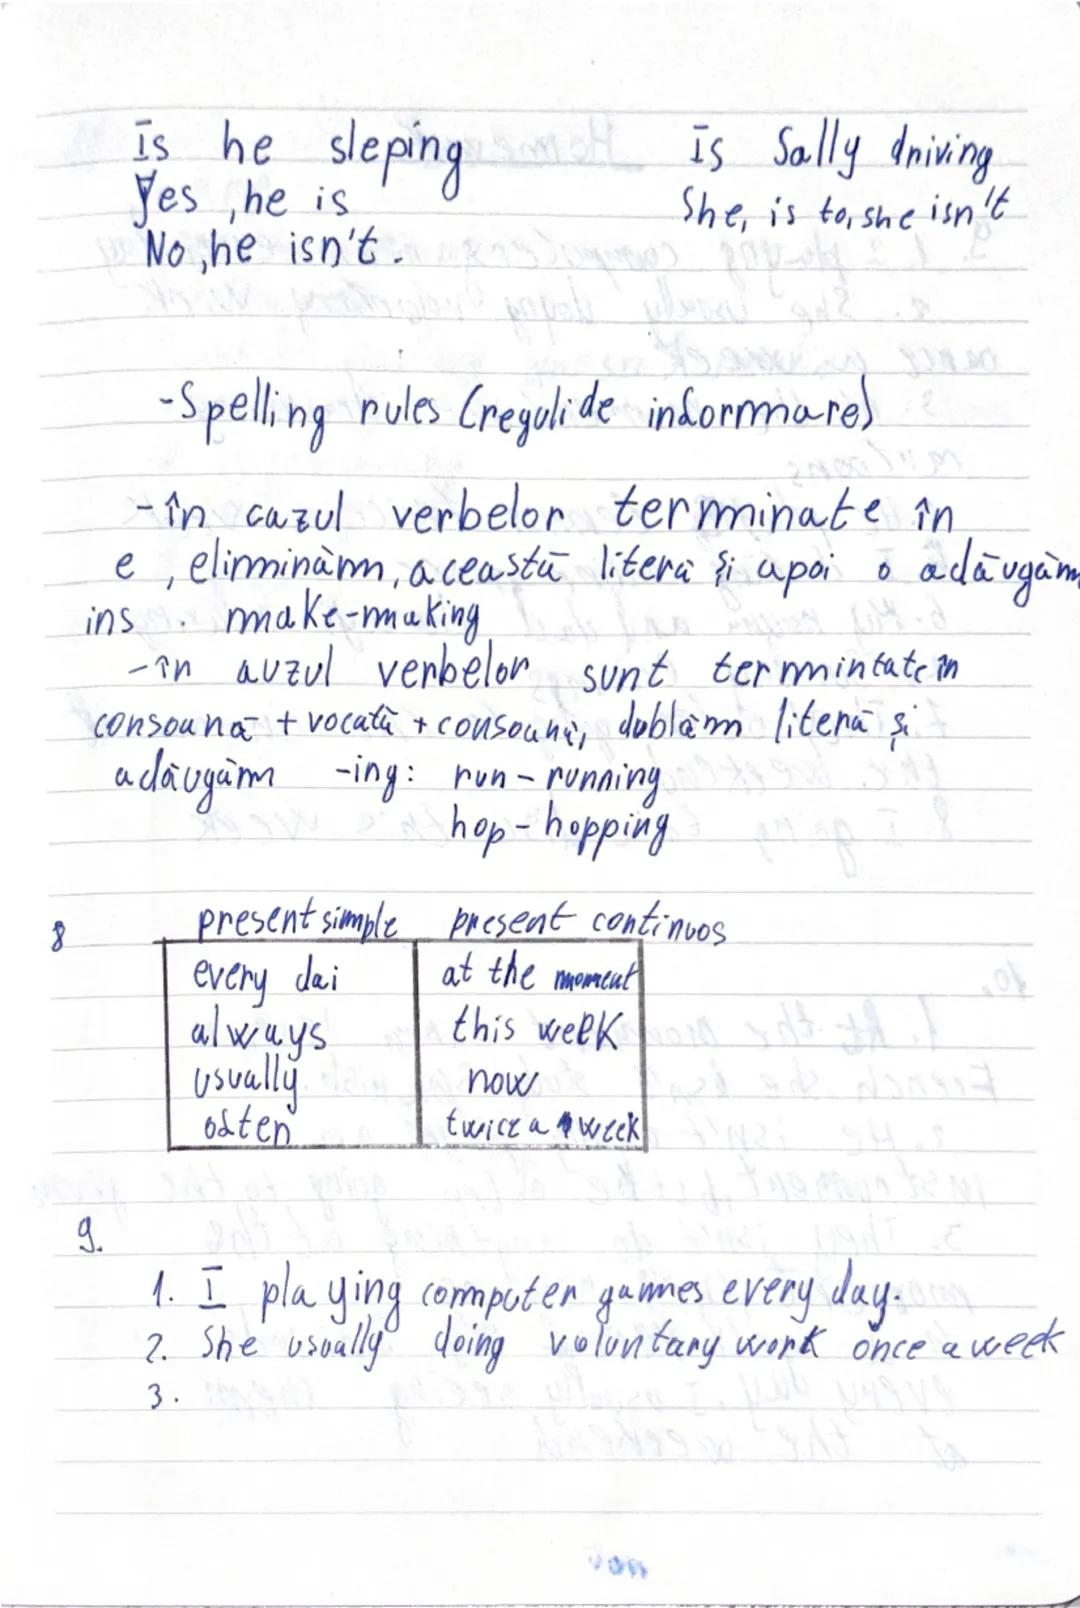 Is he sleping
Yes, he is
No, he isn't.
Is Sally driving
She, is to, she isn't
-Spelling rules (reguli de informare)
-în cazul verbelor terminate în
e, eliminăm, această literă și apoi o adăugăm
ins. make-making
-în auzul verbelor sunt termintate în
consoană + vocată + consoană, dublăm literă și
adăugăm -ing: run-running
hop-hopping
8
present simple present continuos
every dai at the moment
always this week
usually now
often twice a week
9.
1. I playing computer games every day.
2. She usually doing voluntary work once a week
3.